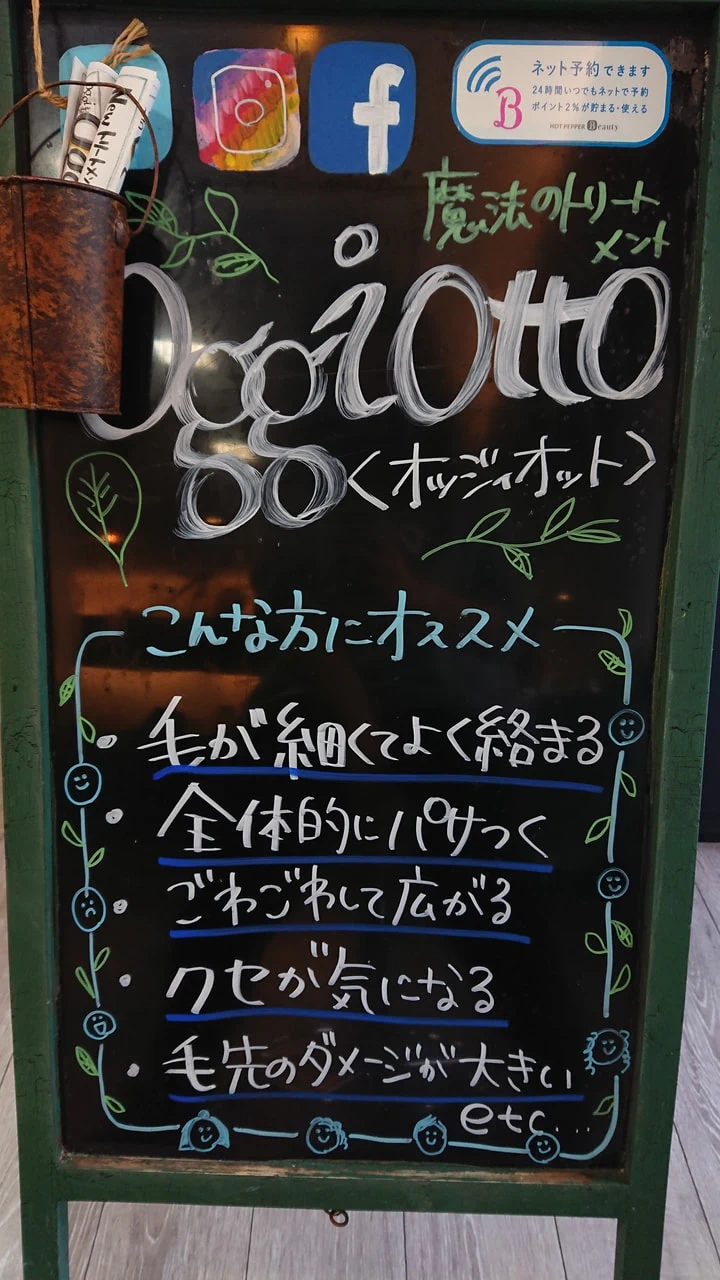 New トリートメン
ネット予約できます
24時間いつでもネットで予約
ポイント2%が貯まる・使える
HOT PEPPER Beauty
魔法のトリート
メント
Oggiotto
<オッジィオット>
こんな方にオススメ
・毛が細くてよく絡まる
・全体的にパサつく
・ごわごわして広がる
・クセが気になる
・毛先のダメージが大きい
etc...